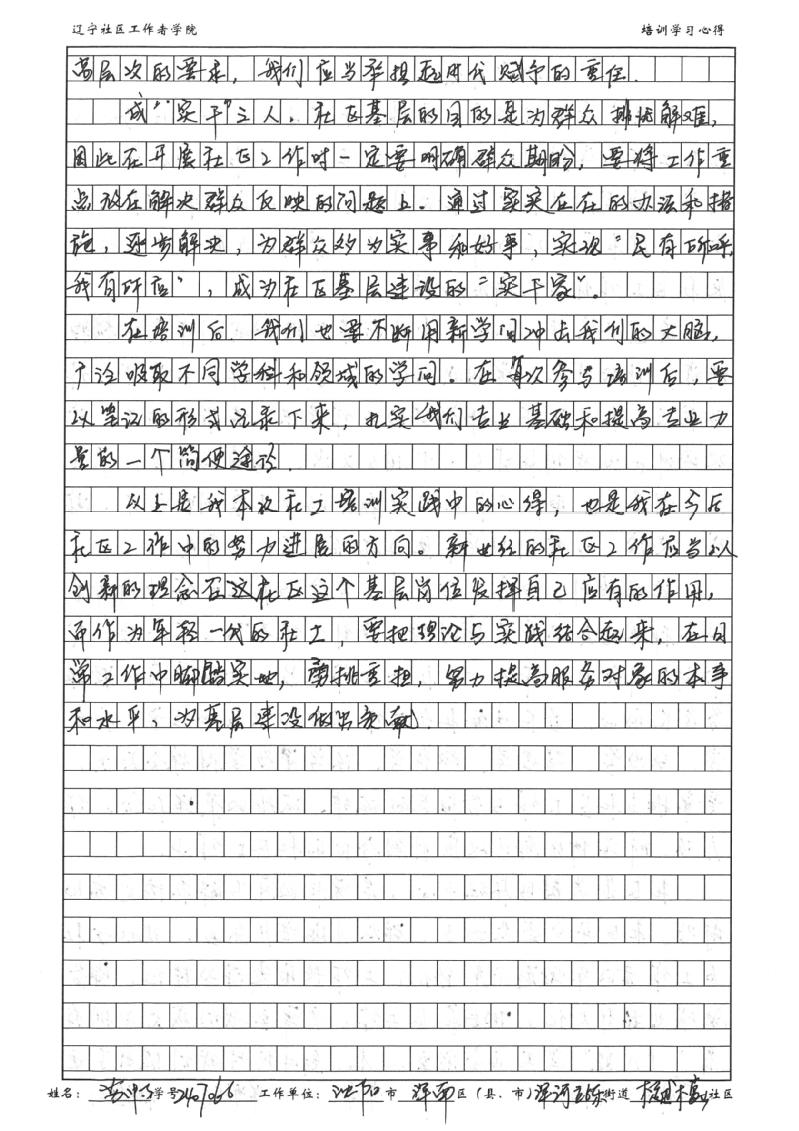 辽宁社区工作者学院 培训学习心得
高层次的要求，我们应当承担起时代赋予的重任.
成“实干”之人. 社区基层的目的是为群众排忧解难，
因此在开展社区工作时一定要明确群众期盼，要将工作重
点放在解决群众反映的问题上。通过实实在在的办法和措
施，逐步解决，为群众多为实事和好事，实现“民有所呼
我有所应”，成为社区基层建设的“实干家”。
在培训后. 我们也要不断用新学问冲击我们的大脑，
广泛吸取不同学科和领域的学问。在每次参与培训后，要
以笔记的形式记录下来，扎实我们专业基础和提高专业力
量的一个简便途径.
以上是我本次社工培训实践中的心得，也是我在今后
社区工作中的努力进展的方向。新世纪的社区工作应当以
创新的理念在这社区这个基层岗位发挥自己应有的作用，
而作为年轻一代的社工，要把理论与实践结合起来，在日
常工作中脚踏实地，勇挑重担，努力提高服务对象的本事
和水平，为基层建设做出贡献.
姓名： 学号2407066 工作单位：沈阳市 浑南区（县、市）浑河站东街道 社区